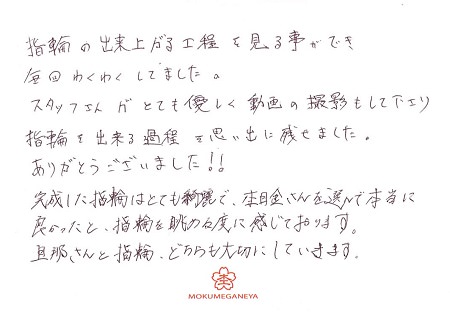 指輪の出来上がる工程を見る事ができ
毎回わくわくしてました。
スタッフさんがとても優しく動画の撮影もして下さり
指輪を出来る過程を思い出に残せました。
ありがとうございました!!
完成した指輪はとても綺麗で、杢目金さんを選んで本当に
良かったと、指輪を眺める度に感じております。
旦那さんと指輪、どちらも大切にしていきます。
杢
MOKUMEGANEYA